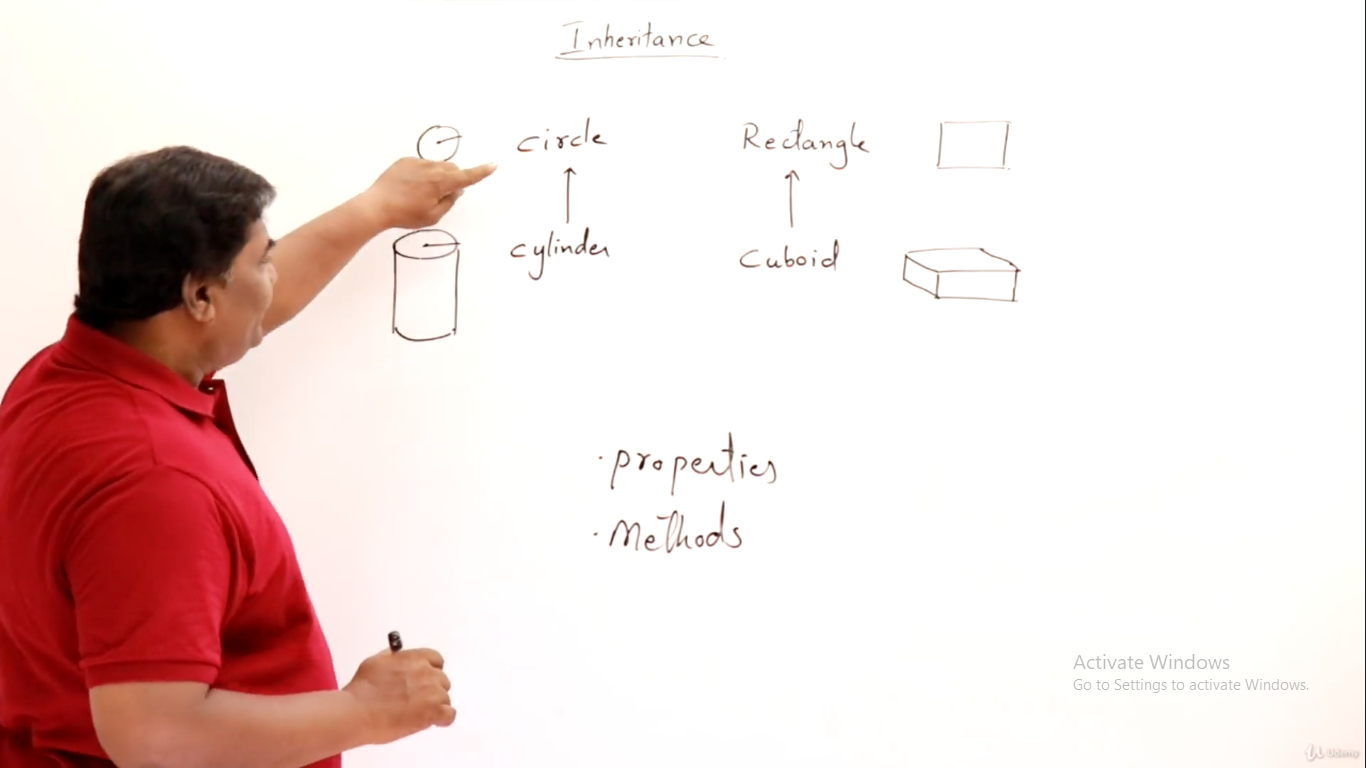 Inheritance
circle
Rectangle
cylinder
cuboid
· properties
· Methods
Activate Windows
Go to Settings to activate Windows.
Udemy